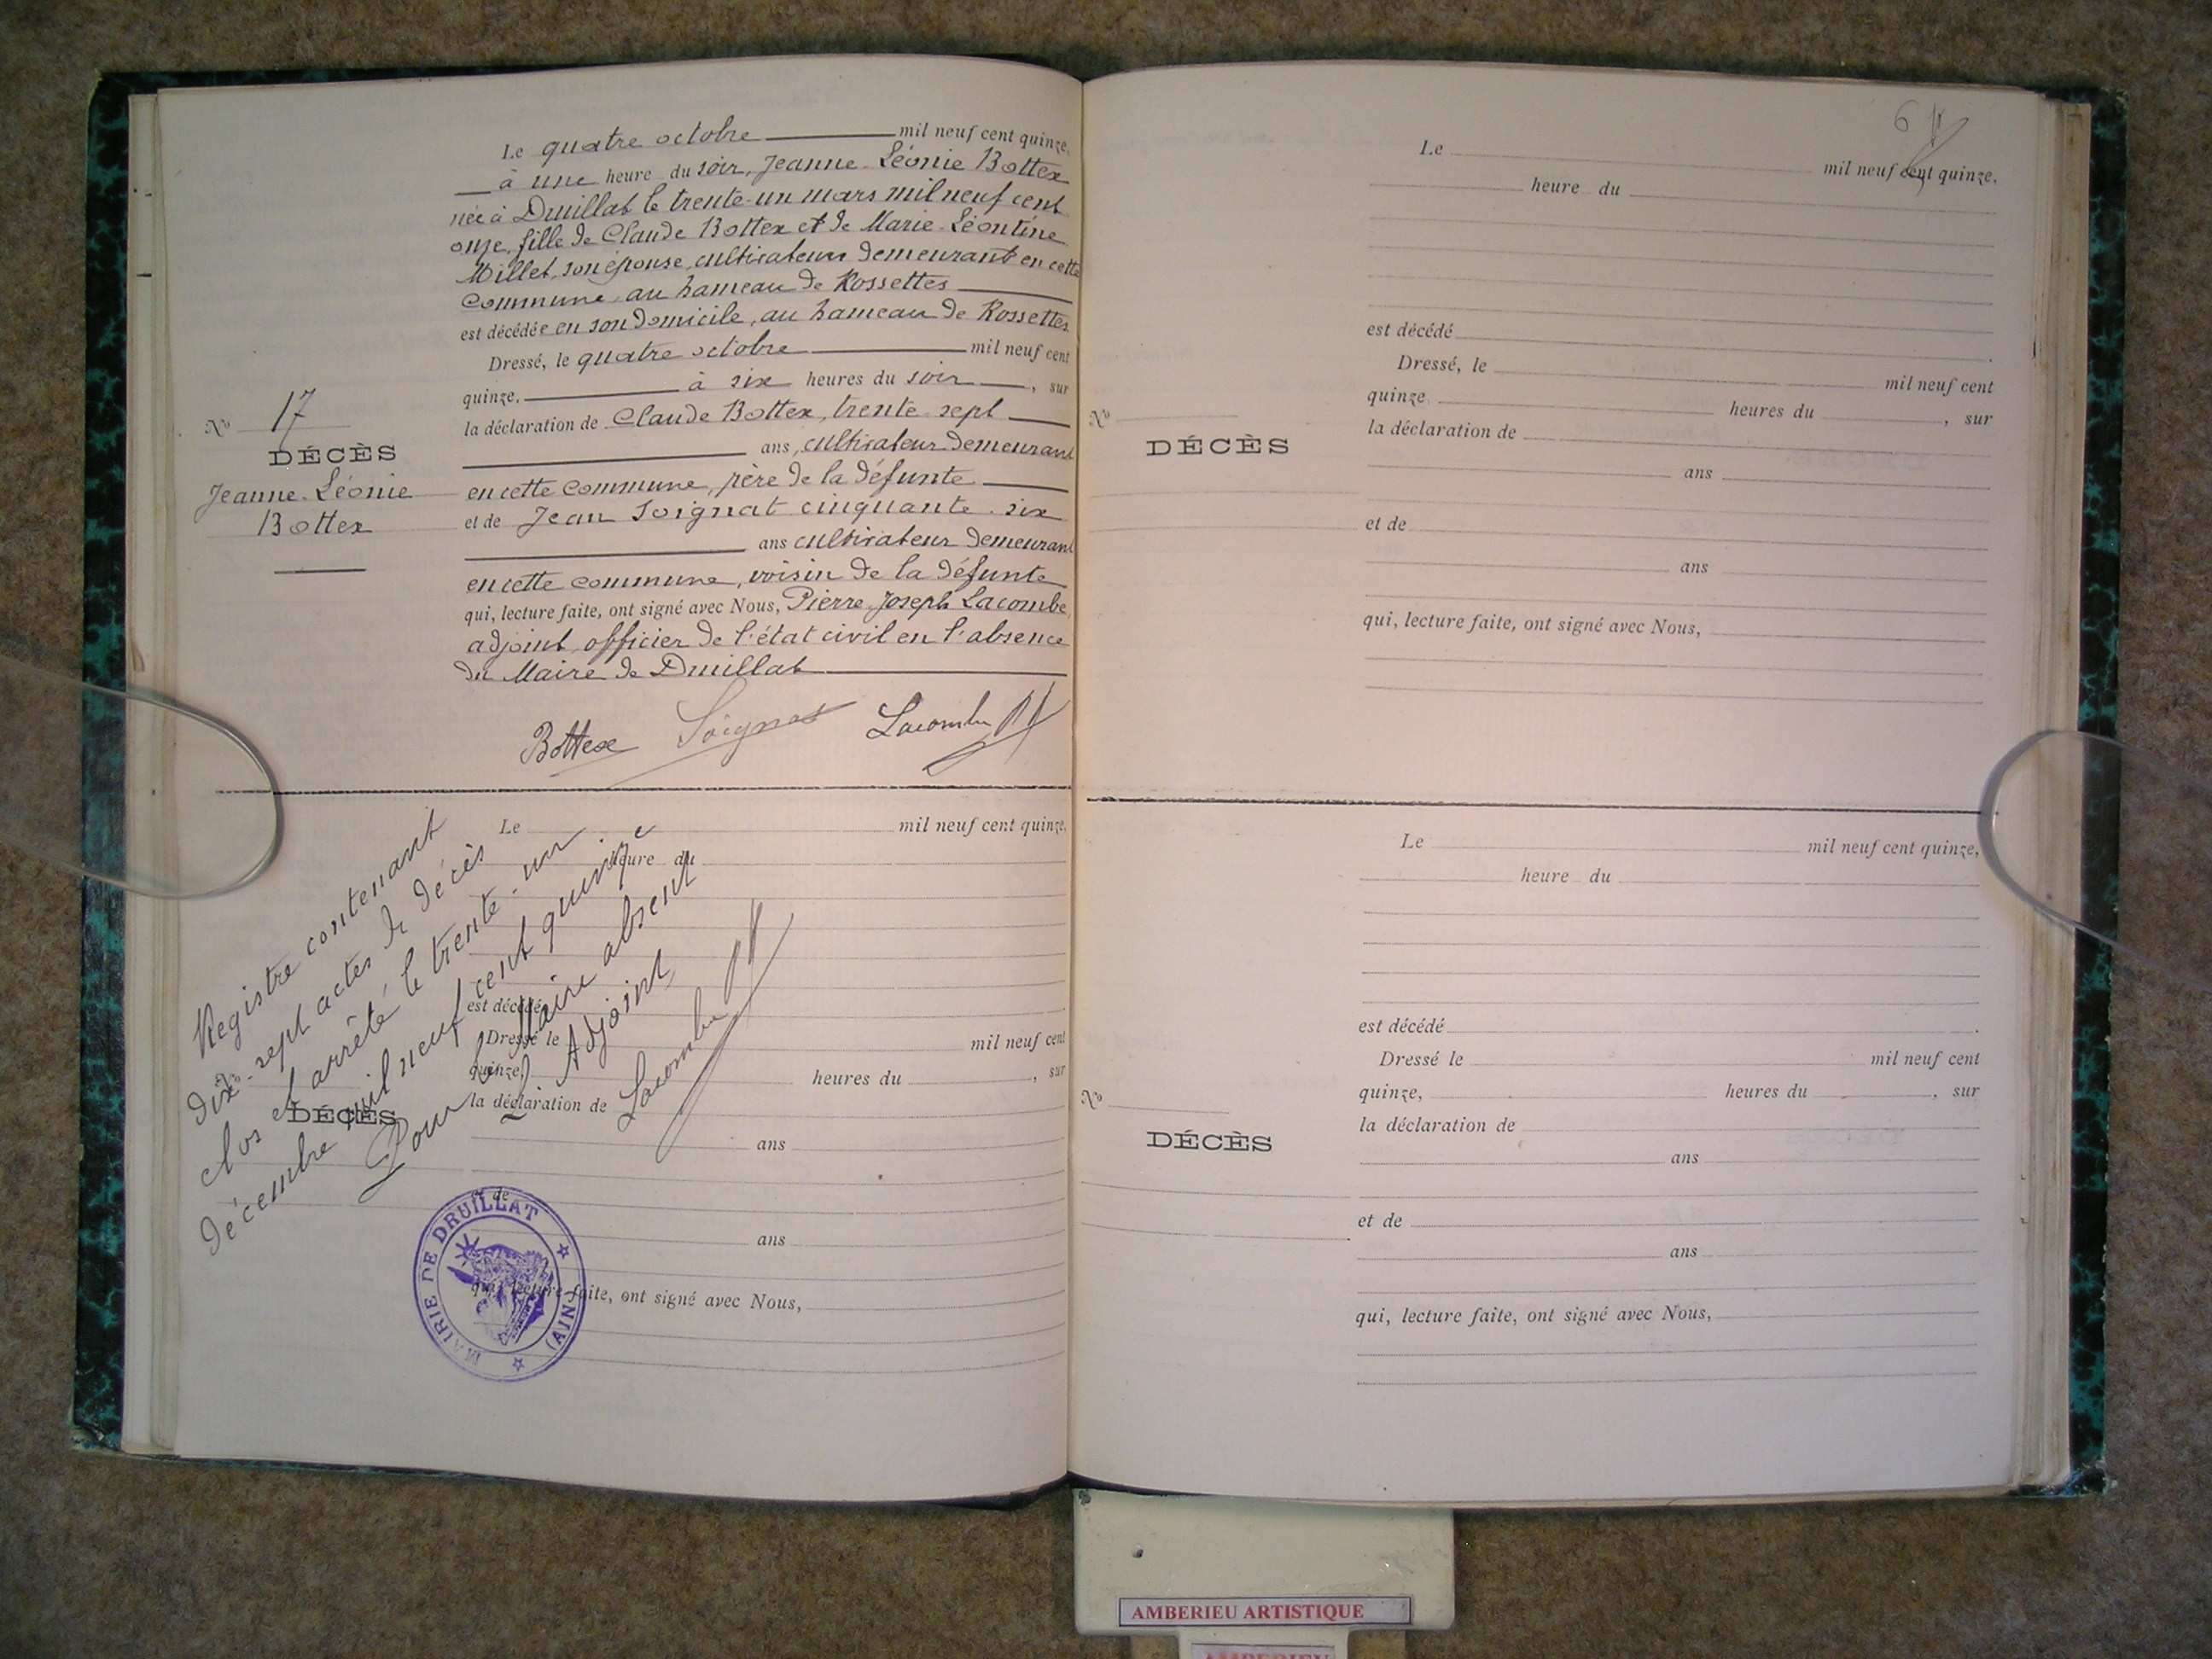 Le quatre octobre mil neuf cent quinze,
à une heure du soir, Jeanne-Léonie Bottex
née à Druillat le trente-un mars mil neuf cent
onze, fille de Claude Bottex et de Marie-Léontine
Millet, son épouse, cultivateurs demeurant en cette
commune, au hameau de Rossettes
est décédée en son domicile, au hameau de Rossettes
Dressé, le quatre octobre mil neuf cent
quinze. à six heures du soir, sur
la déclaration de Claude Bottex, trente-sept
ans, cultivateur demeurant
en cette commune, père de la défunte
et de Jean Soignat cinquante-six
ans cultivateur demeurant
en cette commune, voisin de la défunte
qui, lecture faite, ont signé avec Nous, Pierre-Joseph Lacombe,
adjoint, officier de l'état civil en l'absence
du Maire de Druillat
Bottex Soignat Lacombe
No 17
DÉCÈS
Jeanne-Léonie
Bottex
Le mil neuf cent quinze,
heure du
est décédé
Dressé le mil neuf cent
quinze, heures du , sur
la déclaration de
ans
et de
ans
qui, lecture faite, ont signé avec Nous,
No
DÉCÈS
Registre contenant
dix-sept actes de décès
clos et arrêté le trente-un
décembre mil neuf cent quinze
Pour le Maire absent
L'Adjoint,
Lacombe
MAIRIE DE DRUILLAT
(AIN)
6
Le mil neuf cent quinze.
heure du
est décédé
Dressé, le mil neuf cent
quinze heures du , sur
la déclaration de
ans
et de
ans
qui, lecture faite, ont signé avec Nous,
No
DÉCÈS
Le mil neuf cent quinze,
heure du
est décédé
Dressé le mil neuf cent
quinze, heures du , sur
la déclaration de
ans
et de
ans
qui, lecture faite, ont signé avec Nous,
No
DÉCÈS
AMBERIEU ARTISTIQUE
AMBERIEU